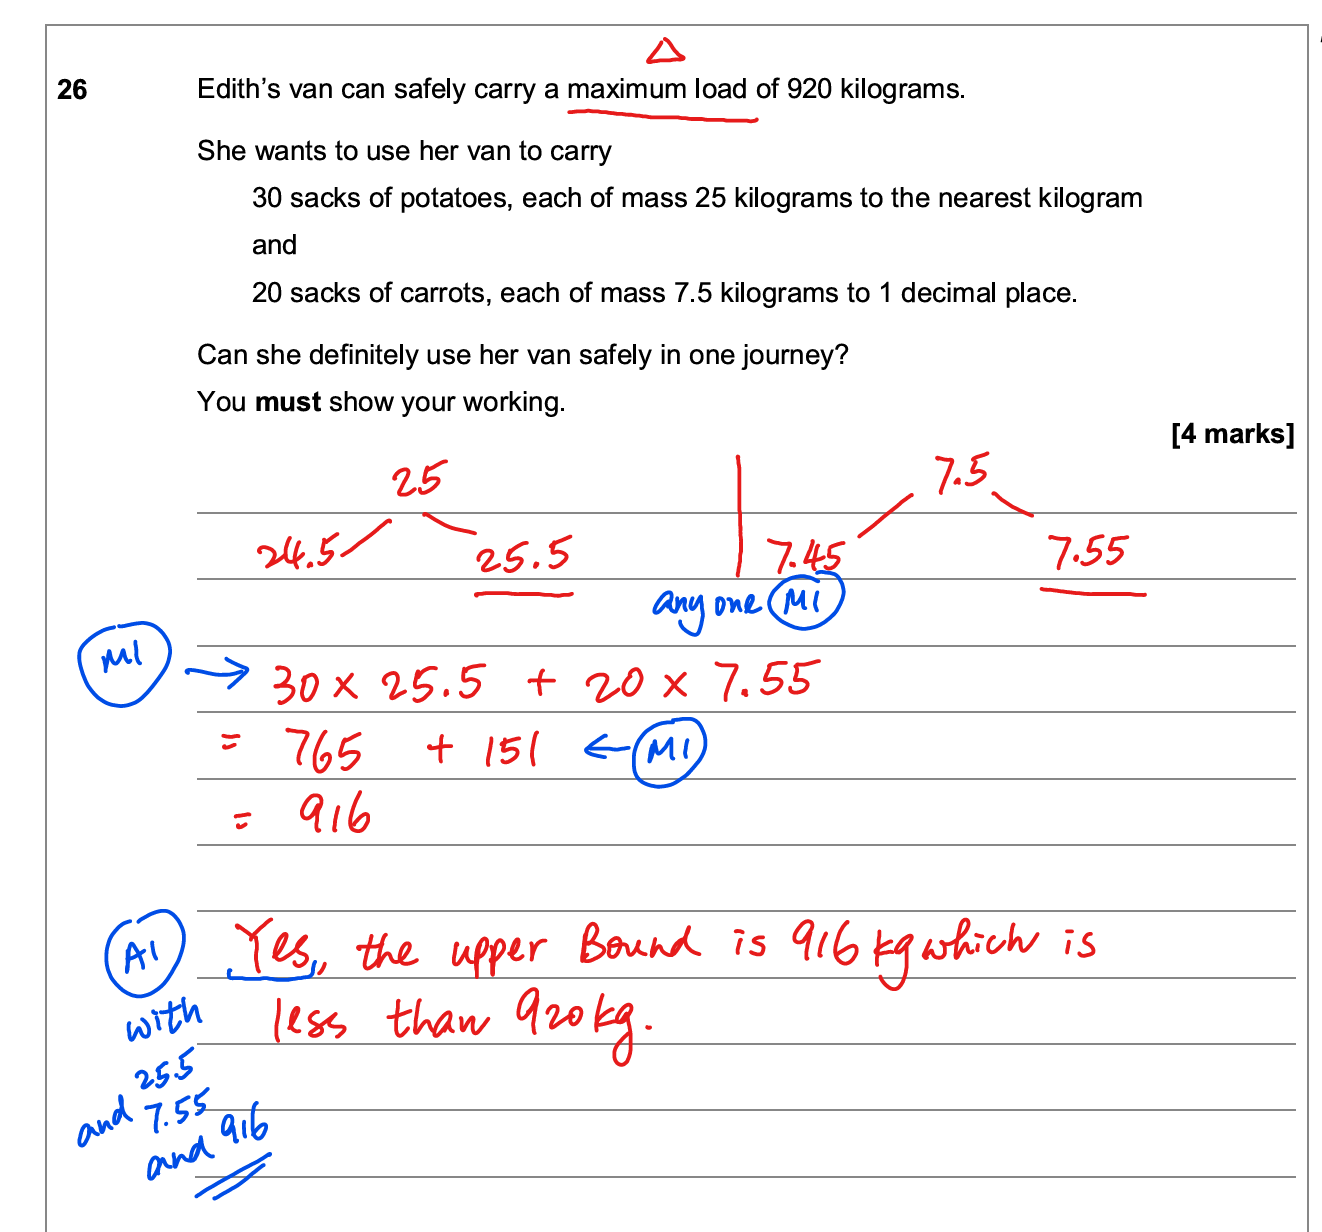 26 Edith's van can safely carry a maximum load of 920 kilograms.
She wants to use her van to carry
30 sacks of potatoes, each of mass 25 kilograms to the nearest kilogram
and
20 sacks of carrots, each of mass 7.5 kilograms to 1 decimal place.
Can she definitely use her van safely in one journey?
You must show your working.
[4 marks]
25 7.5
24.5 25.5 7.45 7.55
any one M1
M1 → 30 × 25.5 + 20 × 7.55
= 765 + 151 ← M1
= 916
A1 Yes, the upper Bound is 916 kg which is
less than 920kg.
with
25.5
and 7.55
and 916